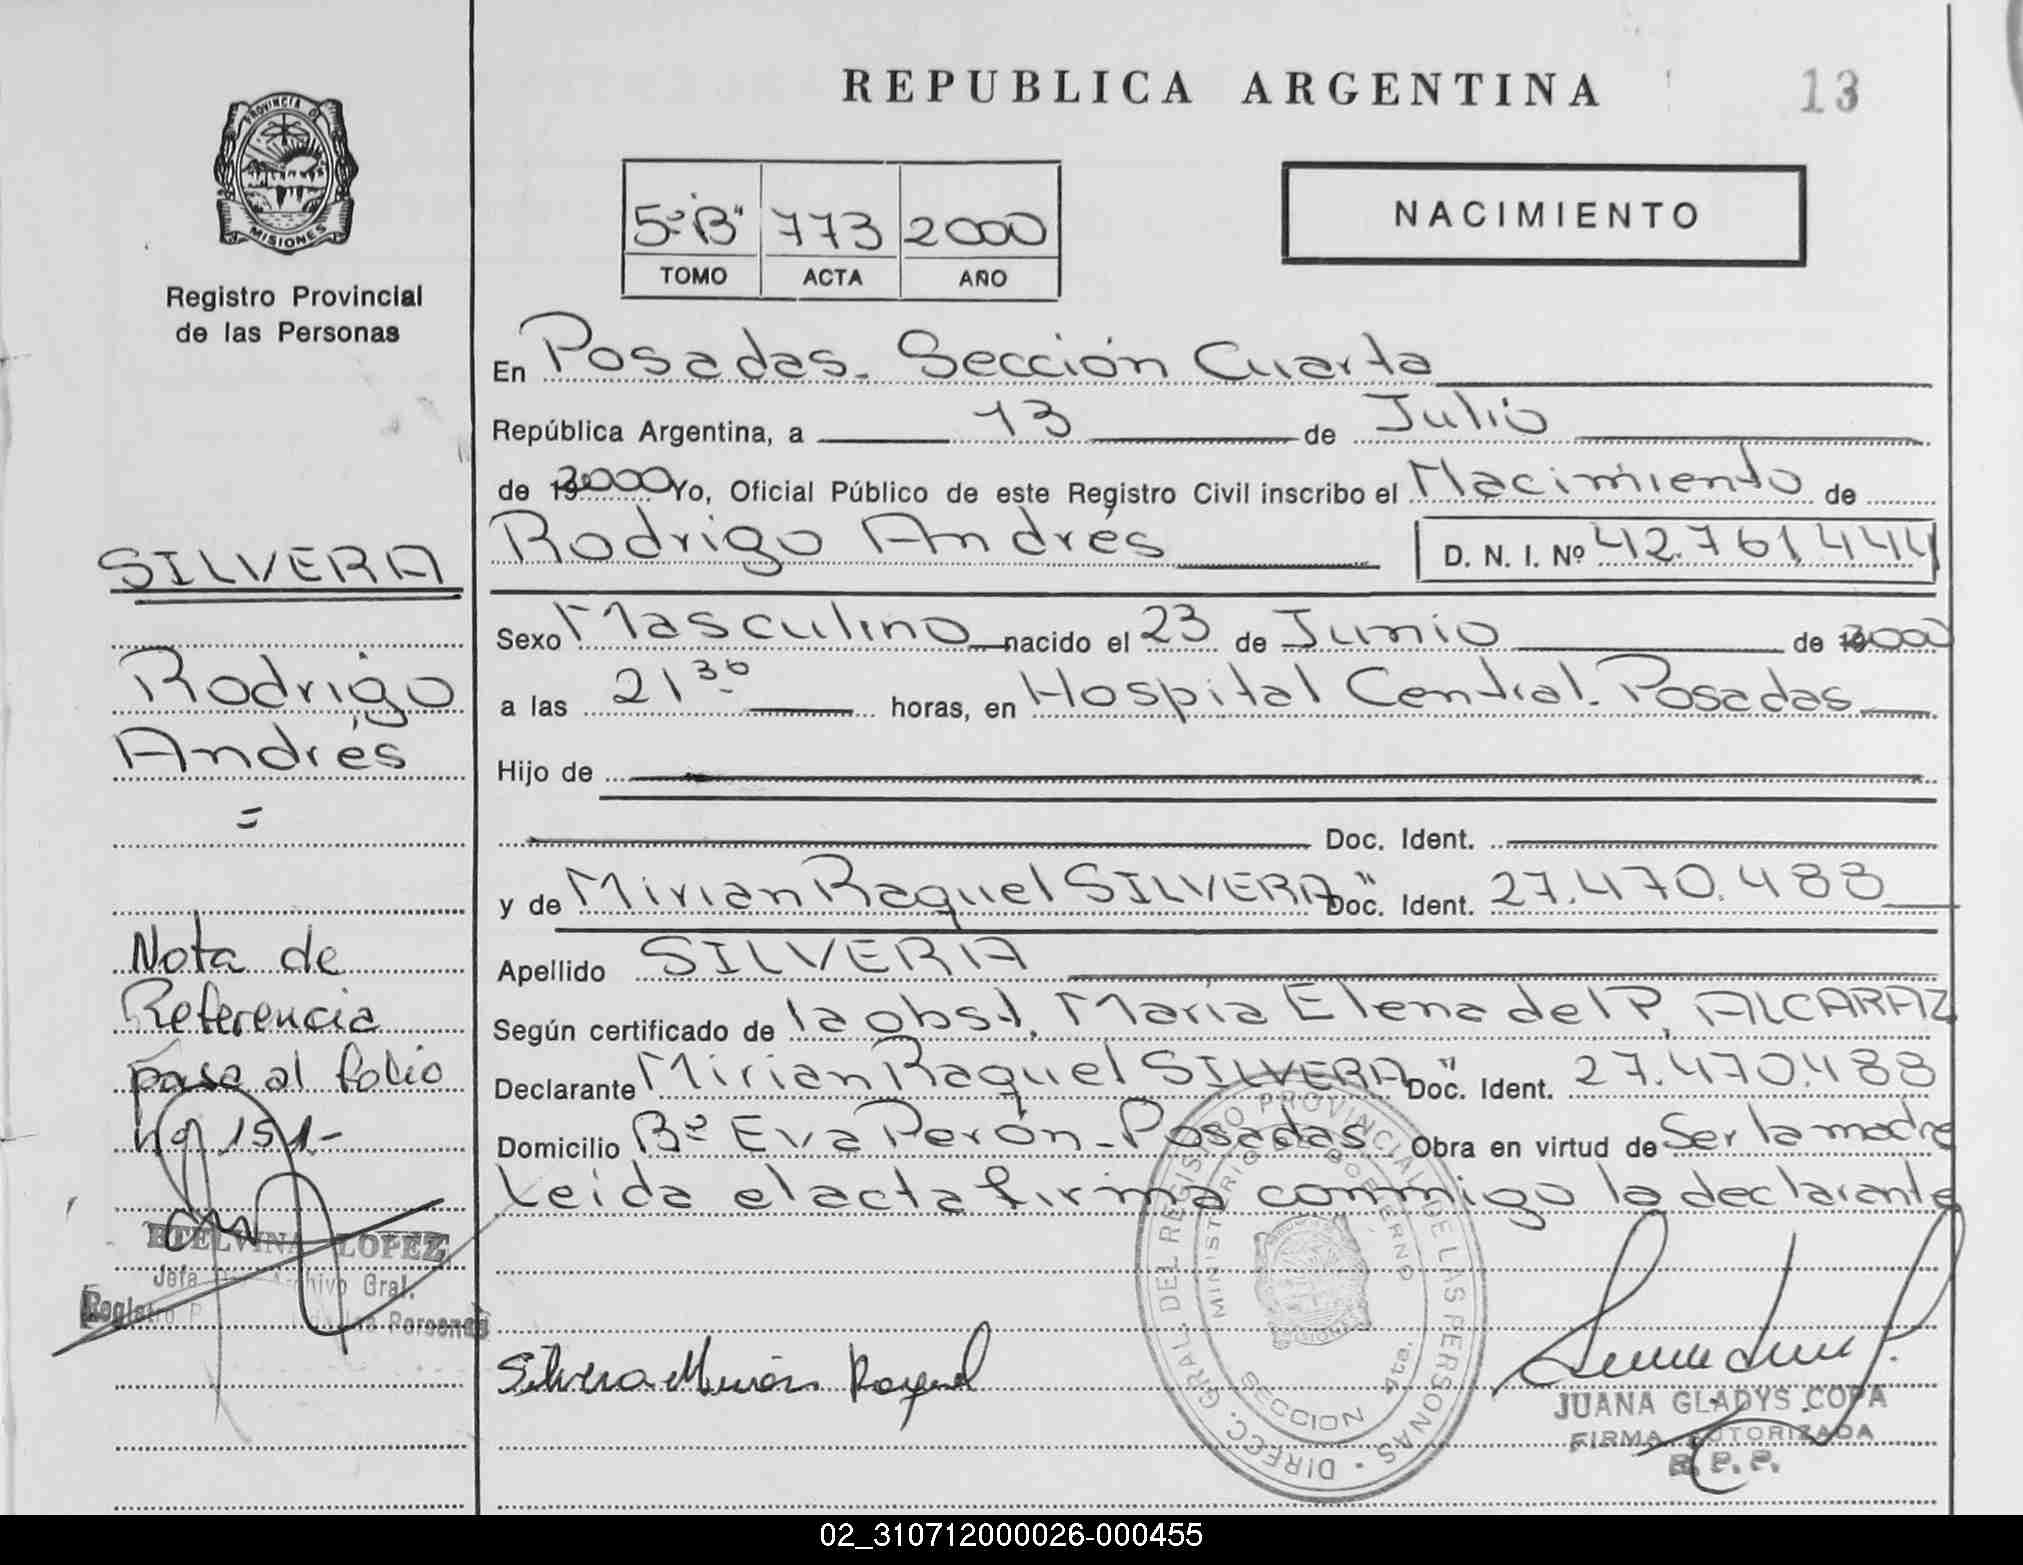 PROVINCIA DE
MISIONES
Registro Provincial
de las Personas
SILVERA
Rodrigo
Andrés
=
Nota de
Referencia
pasa al folio
Nº 151.-
ETELVINA LOPEZ
Jefa Archivo Gral.
Registro P de las Personas
REPUBLICA ARGENTINA
13
5º "B" 773 2000
TOMO ACTA AÑO
NACIMIENTO
En Posadas. Sección Cuarta
República Argentina, a 13 de Julio
de 2000 Yo, Oficial Público de este Registro Civil inscribo el Nacimiento de
Rodrigo Andrés D. N. I. Nº 42.761.444
Sexo Masculino nacido el 23 de Junio de 2000
a las 21 30 horas, en Hospital Central. Posadas
Hijo de
Doc. Ident.
y de Mirian Raquel SILVERA " Doc. Ident. 27.470.488
Apellido SILVERA
Según certificado de la obst. María Elena del P. ALCARAZ
Declarante Mirian Raquel SILVERA " Doc. Ident. 27.470.488
Domicilio Bº Eva Perón - Posadas Obra en virtud de Ser la madre
Leída el acta firma conmigo la declarante
DIRECC. GRAL. DEL REGISTRO PROVINCIAL DE LAS PERSONAS
MINISTERIO DE GOBIERNO
SECCION 4ta.
Silvera Mirian Raquel
JUANA GLADYS COPA
FIRMA AUTORIZADA
R. P. P.
02_310712000026-000455